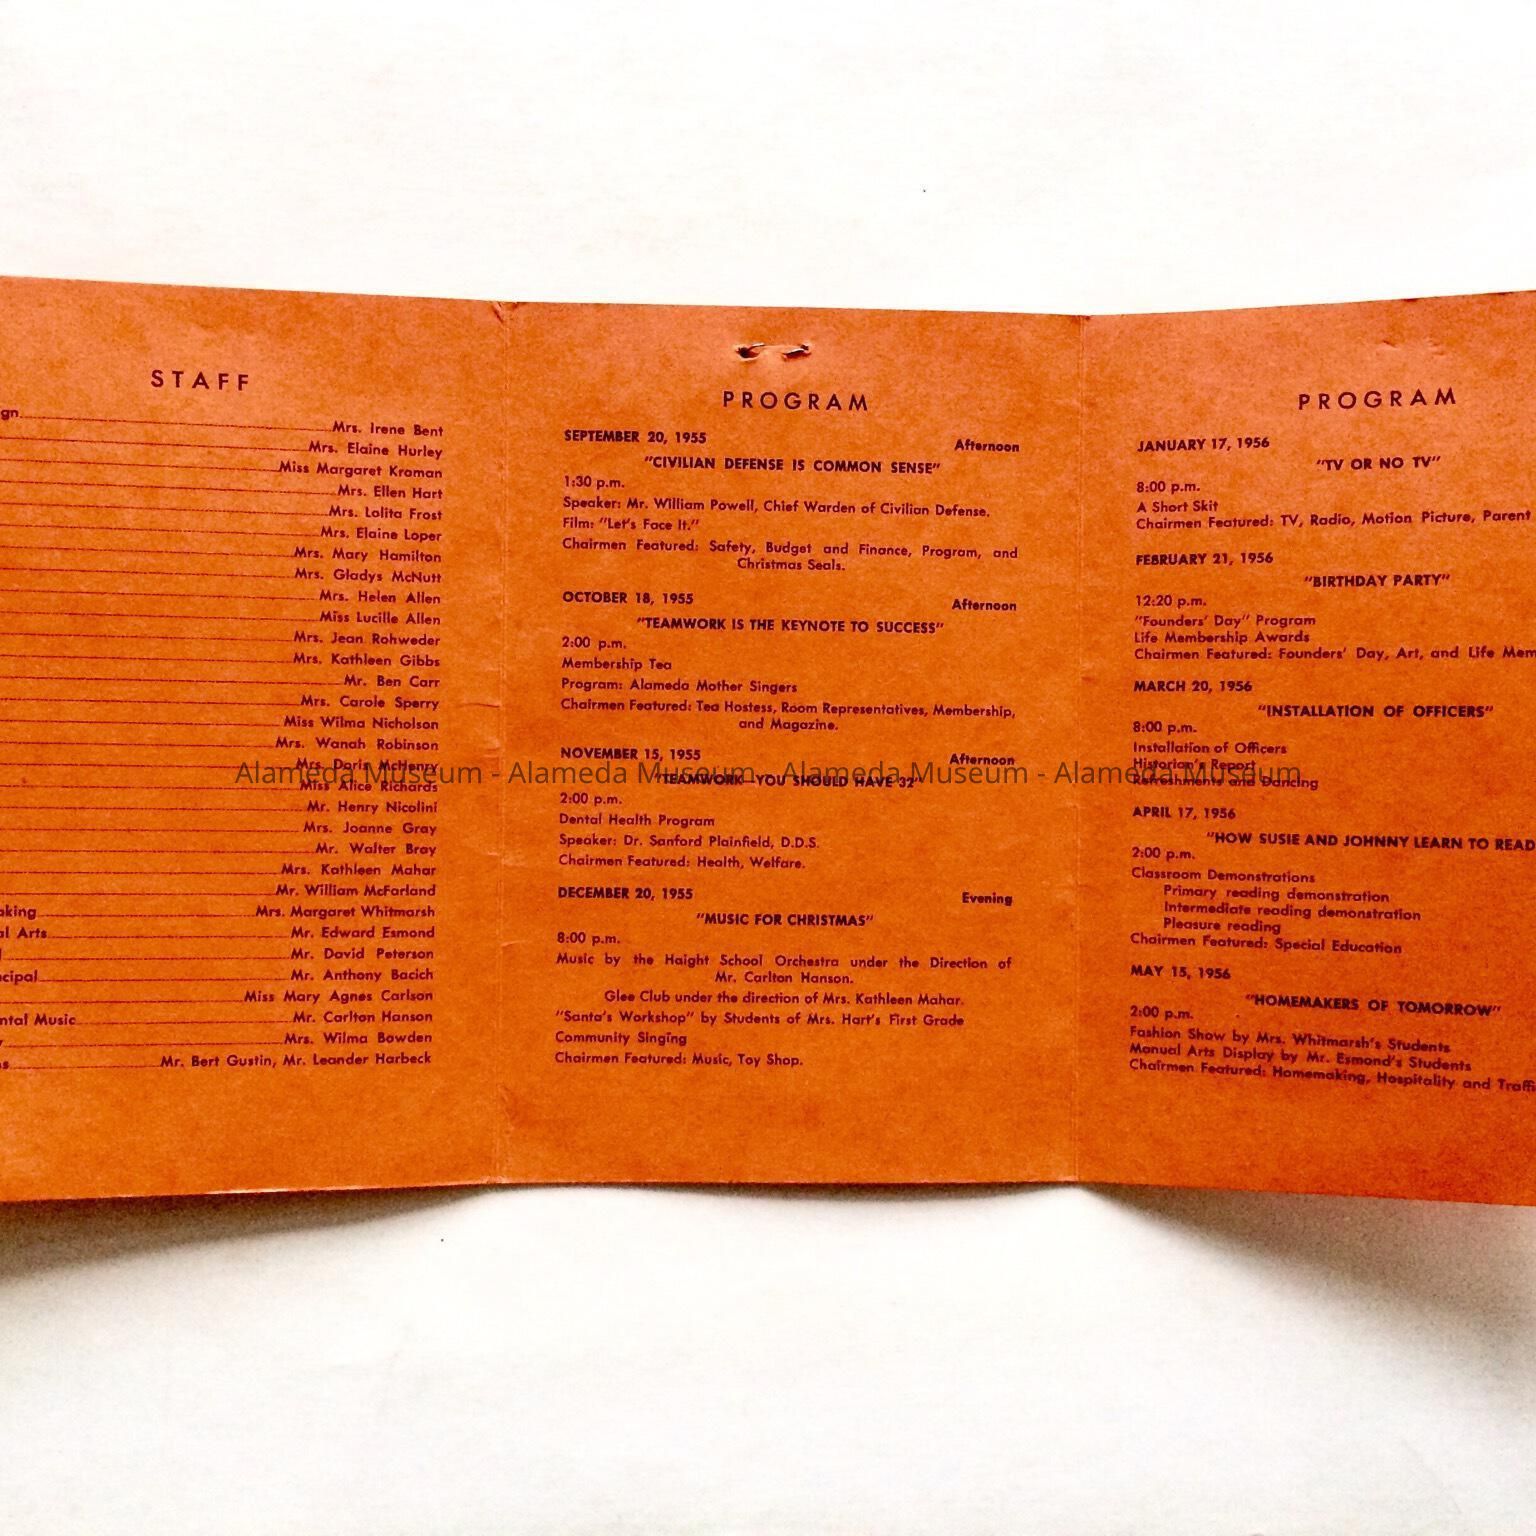 STAFF
gn Mrs. Irene Bent
Mrs. Elaine Hurley
Miss Margaret Kroman
Mrs. Ellen Hart
Mrs. Lolita Frost
Mrs. Elaine Loper
Mrs. Mary Hamilton
Mrs. Gladys McNutt
Mrs. Helen Allen
Miss Lucille Allen
Mrs. Jean Rohweder
Mrs. Kathleen Gibbs
Mr. Ben Carr
Mrs. Carole Sperry
Miss Wilma Nicholson
Mrs. Wanah Robinson
Mrs. Doris McHenry
Miss Alice Richards
Mr. Henry Nicolini
Mrs. Joanne Gray
Mr. Walter Bray
Mrs. Kathleen Mahar
Mr. William McFarland
aking Mrs. Margaret Whitmarsh
al Arts Mr. Edward Esmond
Mr. David Peterson
ncipal Mr. Anthony Bacich
Miss Mary Agnes Carlson
ntal Music Mr. Carlton Hanson
Mrs. Wilma Bowden
ns Mr. Bert Gustin, Mr. Leander Harbeck
PROGRAM
SEPTEMBER 20, 1955 Afternoon
"CIVILIAN DEFENSE IS COMMON SENSE"
1:30 p.m.
Speaker: Mr. William Powell, Chief Warden of Civilian Defense.
Film: "Let's Face It."
Chairmen Featured: Safety, Budget and Finance, Program, and
Christmas Seals.
OCTOBER 18, 1955 Afternoon
"TEAMWORK IS THE KEYNOTE TO SUCCESS"
2:00 p.m.
Membership Tea
Program: Alameda Mother Singers
Chairmen Featured: Tea Hostess, Room Representatives, Membership,
and Magazine.
NOVEMBER 15, 1955 Afternoon
"TEAMWORK—YOU SHOULD HAVE 32"
2:00 p.m.
Dental Health Program
Speaker: Dr. Sanford Plainfield, D.D.S.
Chairmen Featured: Health, Welfare.
DECEMBER 20, 1955 Evening
"MUSIC FOR CHRISTMAS"
8:00 p.m.
Music by the Haight School Orchestra under the Direction of
Mr. Carlton Hanson.
Glee Club under the direction of Mrs. Kathleen Mahar.
"Santa's Workshop" by Students of Mrs. Hart's First Grade
Community Singing
Chairmen Featured: Music, Toy Shop.
PROGRAM
JANUARY 17, 1956
"TV OR NO TV"
8:00 p.m.
A Short Skit
Chairmen Featured: TV, Radio, Motion Picture, Parent
FEBRUARY 21, 1956
"BIRTHDAY PARTY"
12:20 p.m.
"Founders' Day" Program
Life Membership Awards
Chairmen Featured: Founders' Day, Art, and Life Mem
MARCH 20, 1956
"INSTALLATION OF OFFICERS"
8:00 p.m.
Installation of Officers
Historian's Report
Refreshments and Dancing
APRIL 17, 1956
"HOW SUSIE AND JOHNNY LEARN TO READ
2:00 p.m.
Classroom Demonstrations
Primary reading demonstration
Intermediate reading demonstration
Pleasure reading
Chairmen Featured: Special Education
MAY 15, 1956
"HOMEMAKERS OF TOMORROW"
2:00 p.m.
Fashion Show by Mrs. Whitmarsh's Students
Manual Arts Display by Mr. Esmond's Students
Chairmen Featured: Homemaking, Hospitality and Traffi
Alameda Museum - Alameda Museum - Alameda Museum - Alameda Museum